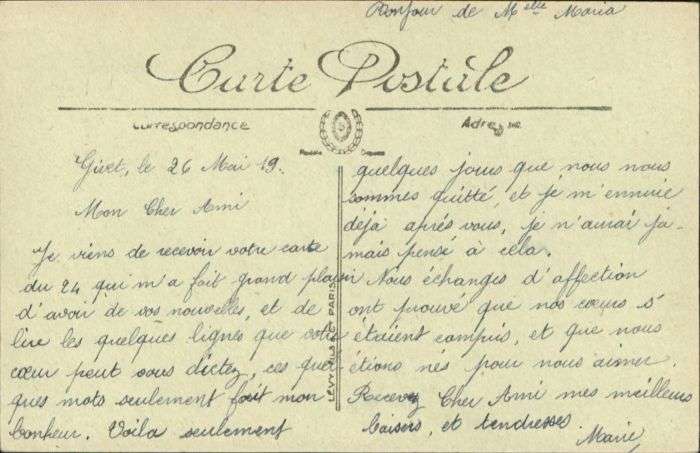 Bonjour de Melle Maria
Carte Postale
Correspondance
Adresse
Givet, le 26 Mai 19.
Mon Cher Ami
Je viens de recevoir votre carte
du 24 qui m'a fait grand plaisir
d'avoir de vos nouvelles, et de
lire les quelques lignes que votre
cœur peut vous dictez, ces quel
ques mots seulement fait mon
bonheur. Voila seulement
quelques jours que nous nous
sommes quitté, et je m'ennuie
déjà après vous, je n'aurai ja-
mais pensé à cela.
Nous échanges d'affection
ont prouvé que nos cœurs s'
étaient compris, et que nous
étions nés pour nous aimer.
Recevez Cher Ami mes meilleurs
baisers, et tendresses.
Marie
LEVY FILS ET CIE PARIS